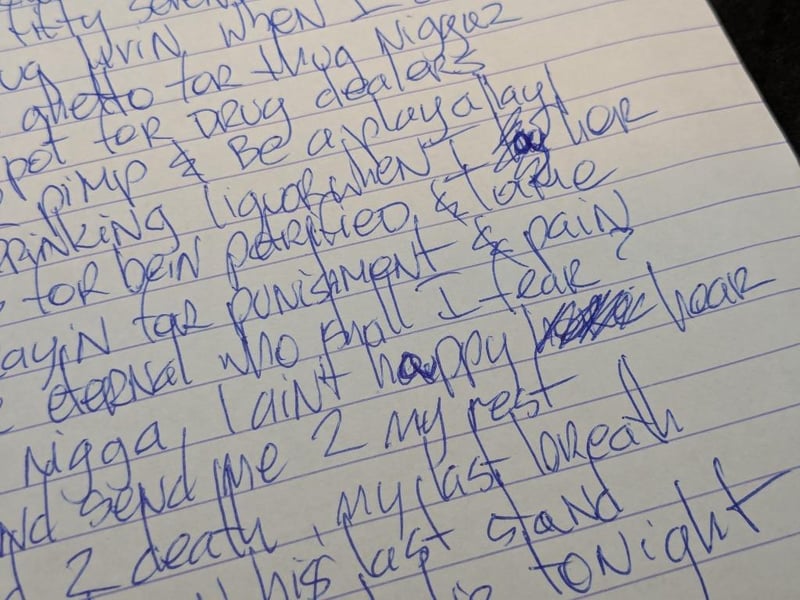 when I
ug livin, when I
ghetto for thug Niggaz
spot for DRUG dealers
pimp & Be a playa
DRINKING liquor when I lay her
for bein petrified, & t
ayin for punishment & pain
eternal who shall I fear?
Nigga, I aint happy hear
And send me 2 my rest
2 death, my last breath
his last stand
tonight